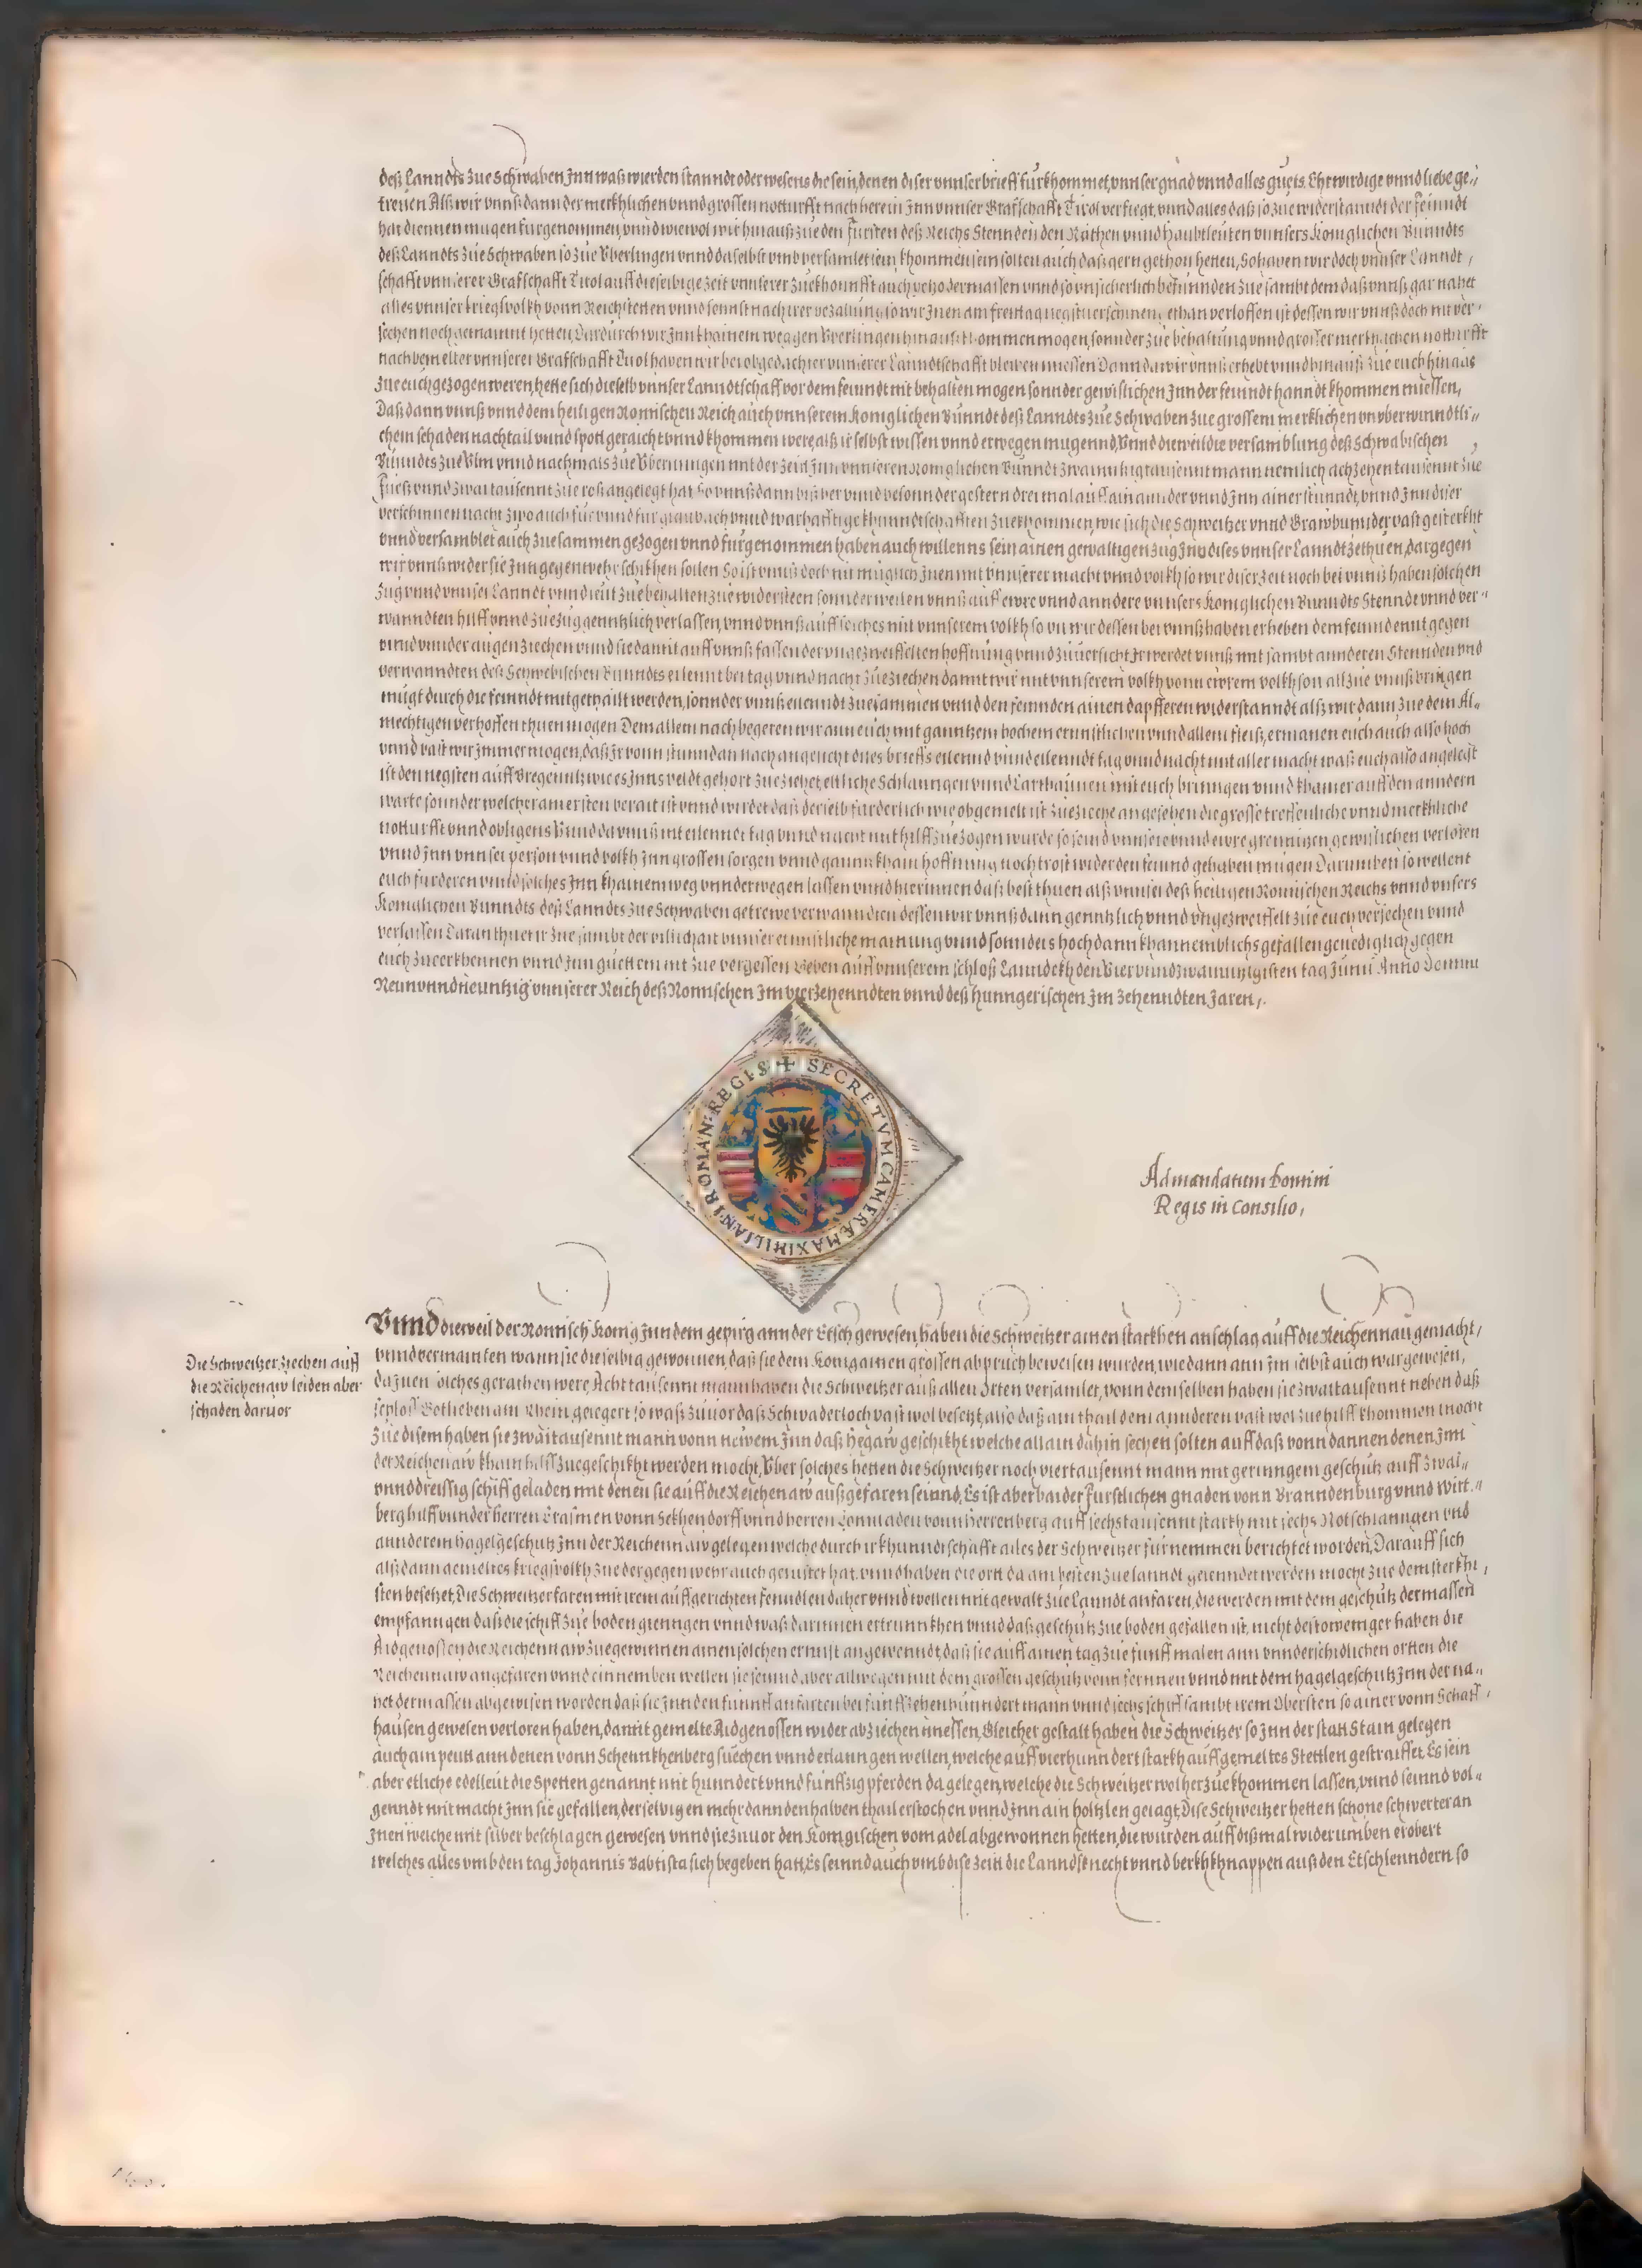 deß Lanndts zue Schwaben Jnn waß wierden stanndt oder wesens die sein, denen diser vnnser brieff fürkhommet, vnnser gnad vnnd alles guets. Ehrwirdige vnnd liebe ge„
treuen Alß wir vnnß dann der merkhlichen vnnd grossen notturfft nach herein Jnn vnnser Grafschafft Tirol verfiegt, vnnd alles daß so zue widerstanndt der feinndt
hat diennen mugen fürgenommen, vnnd wiewol wir hinauß zue den fürsten deß Reichs Stennden den Räthen vnnd haubtleuten vnnsers Königlichen Bunndts
deß Lanndts zue Schwaben so zue Vberlingen vnnd daselbst vmb versamlet sein, khommen sein solten auch daß gern gethon hetten, So haben wir doch vnnser Lanndt,
schafft vnnserer Grafschafft Tirol auff dieselbige zeit vnnserer zuekhounfft auch dermassen vnnd so vnsicherlich befunnden zue sambt dem daß vnnß gar nahet
alles vnnser kriegsvolkh vonn Reichstetten vnnd sonnst nach irer bezallung so wir Jnen am freittag negst verschinen gethan verloffen ist dessen wir vnnß doch nit ver,
sechen noch getraunt hetten, Dardurch wir Jnn khainem weg gen Vberlingen hinauß khommen mogen, sonnder zue behaltung vnnd grosser merkhlichen notturfft
nach dem elter vnnserer Grafschafft Tirol haben wir bei obgedachter vnnserer Lanndtschafft bleiben miessen Dann da wir vnnß erhebt vnnd hinauß zue euch hinaus
zue euch gezogen weren, hette sich dieselb vnnser Lanndtschafft vor dem feinndt nit behalten mogen sonnder gewißlichen Jnn der feinndt hanndt khommen miessen,
Daß dann vnnß vnnd dem heiligen Romischen Reich auch vnnserem Koniglichen Bunndt deß Lanndts zue Schwaben zue grossem merklichen vnuberwinndtli„
chem schaden nachtail vnnd spott geraicht vnnd khommen were alß ir selbst wissen vnnd erwegen mugennd, Vnnd dieweil die versamblung deß Schwabischen
Bunndts zue Vlm vnnd nachmals zue Vberlingen mit der zeid Jnn vnnseren Koniglichen Bunndt zwainntzigtausennt mann nemlich achzehen tausennt zue
fueß vnnd zwai tausennt zue roß angelegt hat So vnnß dann bißher vnnd besonnder gestern drei mal auff ainannder vnnd Jnn ainer stunndt, vnnd Jnn diser
verschinnen nacht zwo auch für vnnd für glaubach vnnd warhafftige khunndtschafften zuekhommen, wie sich die Schweitzer vnnd Grawbünnder vast gesterkht
vnnd versamblet auch zuesammen gezogen vnnd fürgenommen haben auch willenns sein ainen gewaltigen zug Jnn dises vnnser Lanndt zethuen, dargegen
wir vnnß wider sie Jnn gegenwehr schikhen sollen So ist vnnß doch nit muglich Jnen mit vnnserer macht vnnd volkh so wir diser zeit noch bei vnnß haben solchen
zug vnnd vnnser Lanndt vnnd leut zue behalten zue widersteen sonnder wellen vnnß auff ewre vnnd anndere vnnsers Koniglichen Bunndts Stennde vnnd ver„
wanndten hilff vnnd zuezug genntzlich verlassen, vnnd vnnß auff solches mit vnnserem volkh so vil wir dessen bei vnnß haben erheben dem feinnd enntgegen
vnnd vnnder augen ziechen vnnd sie damit auff vnnß fassen der vngezweiffelten hoffnung vnnd zuuersicht Jr werdet vnnß mit sambt annderen Stennden vnd
verwanndten deß Schwebischen Bunndts eilennt bei tag vnnd nacht zueziechen damit wir mit vnnserem volkh vonn ewrem volkh so n all zue vnnß bringen
mugt durch die feinndt nit getailt werden, sonnder vnnß ennndt zuesammen vnnd den feinnden ainen dapfferen widerstanndt alß wir dann zue dem Al„
mechtigen verhoffen thuen mogen Dem allem nach begeren wir ann euch mit ganntzem hochem ernnstlichen vnnd allem fleiß, ermanen euch auch also hoch
vnnd vast wir Jmmer mogen, daß Jr vonn stunndan nach angesicht dises brieffs eilennd vnnd eilenndt tag vnnd nacht mit aller macht waß euch also angelegt
ist den negsten auff Bregenntz wie es Jnns veldt gehort zueziehet, ettliche Schlanngen vnnd Carthaunen mit euch bringen vnnd khainer auff den anndern
warte sonnder welcher am ersten berait ist vnnd wirdet daß derselb fürderlich wie obgemelt ist zueziehe angesehen die grosse treffenliche vnnd merkhliche
notturfft vnnd obligens Vnnd da vnnß nit eilennds tag vnnd nacht mit hilff zuezogen wurde so seind vnnsere vnnd ewre grennitzen gewißlichen verloren
vnnd Jnn vnnser person vnnd volkh Jnn grossen sorgen vnnd gannz khain hoffnung noch trost wider den feinnd gehaben mugen Darumben so wellent
euch fürderen vnnd solches Jnn khainem weg vnnderwegen lassen vnnd hierinnen daß best thuen alß vnnser deß heiligen Romischen Reichs vnnd vnsers
Koniglichen Bunndts deß Lanndts zue Schwaben getrewe verwanndten dessen wir vnnß dann genntzlich vnnd vngezweiffelt zue euch versechen vnnd
verlassen Daran thuet ir zue sambt der billichait vnnser ernnstliche mainung vnnd sonnders hoch dannkhannemblichs gefallen genediglich gegen
euch zueerkhennen vnnd Jnn guettem nit zue vergessen Geben auff vnnserem schloß Lanndekh den Vier vnnd zwainntzigisten tag Junii Anno Domini
Neun vnnd neuntzig vnnserer Reich deß Romischen Jm vierzehenndten vnnd deß hunngerischen Jm zehenndten Jaren,.
+ SECRETVM CAMERÆ MAXIMILIANI ROMAN: REGIS
Ad mandatum Domini
Regis in Consilio,
Vnnd dieweil der Romisch Konig Jnn dem gepirg ann der Etsch gewesen, haben die Schweitzer ainen starkhen anschlag auff die Reichennau gemacht,
Die Schweitzer ziechen auff
die Reichenaw leiden aber
schaden daruor
vnnd vermainten wann sie dieselbig gewonnen, daß sie dem Konig ainen grossen abpruch beweisen wurden, wie dann ann Jm selbst auch war gewesen,
da Jnen solches gerathen were, Acht tausennt mann haben die Schweitzer auß allen Orten versamlet, vonn demselben haben sie zwaitausennt neben daß
schloß Gotlieben am Rhein gelegert so waß zuuor daß Schwaderloch vast wol besetzt, also daß ain thail dem annderen vast wol zue hilff khommen mocht
zue disem haben sie zwaitausennt mann vonn newem Jnn daß Hegaw geschikht welche allain dahin sechen solten auff daß vonn dannen denen Jnn
der Reichenaw khain hilff zuegeschikht werden mocht, Vber solches hetten die Schweitzer noch viertausennt mann mit geringem geschutz auff zwai„
vnnddreissig schiff geladen mit denen sie auff die Reichenaw außgefaren seinnd, Es ist aber baider fürstlichen gnaden vonn Branndenburg vnnd Wirt„
berg hilff vnnder herren Erasmen vonn Sekhendorff vnnd herren Connraden vonn Herrenberg auff sechstausennt starkh mit sechs Notschlanngen vnd
annderem hagelgeschutz Jnn der Reichennaw gelegen welche durch ir khunndtschafft alles der Schweitzer fürnemmen berichtet worden, Darauff sich
alßdann gemeltes kriegsvolkh zue der gegenwehr auch gerüstet hat, vnnd haben die ortt da am besten zue lanndt gelenndet werden mocht zue dem sterkhi,
sten besetzet, Die Schweitzer faren mit irem auffgerichten fenndlen daher vnnd wellen mit gewalt zue Lanndt anfaren, die werden mit dem geschutz dermassen
empfanngen daß die schiff zue boden giengen vnnd waß darinnen ertrunnkhen vnnd daß geschutz zue boden gefallen ist, nicht destoweniger haben die
Aidgenossen die Reichennaw zuegewinnen ainen solchen ernnst angewenndt, daß sie auff ainen tag zue funff malen ann vnnderschidlichen ortten die
Reichennaw angefaren vnnd einnemben wellen sie seinnd aber allwegen mit dem grossen geschutz vonn fernnen vnnd mit dem hagelgeschutz Jnn der na„
het dermassen abgewisen worden daß sie Jnn den funnff anfarten bei funffzehenhunndert mann vnnd sechs schiff sambt irem Obersten so ainer vonn Schaff,
hausen gewesen verloren haben, damit gemelte Aidgenossen wider abziechen miessen, Gleicher gestalt haben die Schweitzer so Jnn der statt Stain gelegen
auch ain peutt ann denen vonn Schennkhenberg suechen vnnd erlanngen wellen, welche auff vierhunndert starkh auff gemeltes Stettlen gestraiffet, Es sein
aber etliche edelleut die Spetten genannt mit hunndert vnnd funffzig pferden da gelegen, welche die Schweitzer wol herzue khommen lassen, vnnd seinnd vol„
genndt mit macht Jnn sie gefallen, derselbigen mehr dann den halben thail erstochen vnnd Jnn ain holtzlen geiagt, Dise Schweitzer hetten schone schwerter an
Jnen welche mit silber beschlagen gewesen vnnd sie zuuor den Konigischen vom adel abgewonnen hetten, die wurden auff dißmal widerumben erobert
welches alles vmb den tag Johannis Babtista sich begeben hatt, Es seinnd auch vmb dise zeitt die Lanndsknecht vnnd berkhkhnappen auß den Etschlenndern so